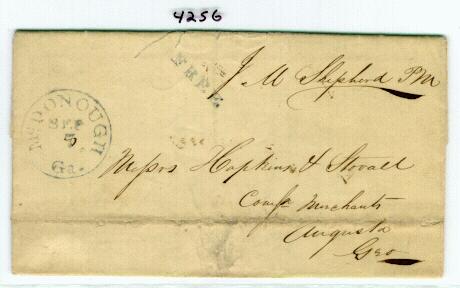 4256
FREE
J M Shepherd PM
McDONOUGH
SEP
5
Ga.
Messrs Hopkins & Stovall
Comn Merchants
Augusta
Geo